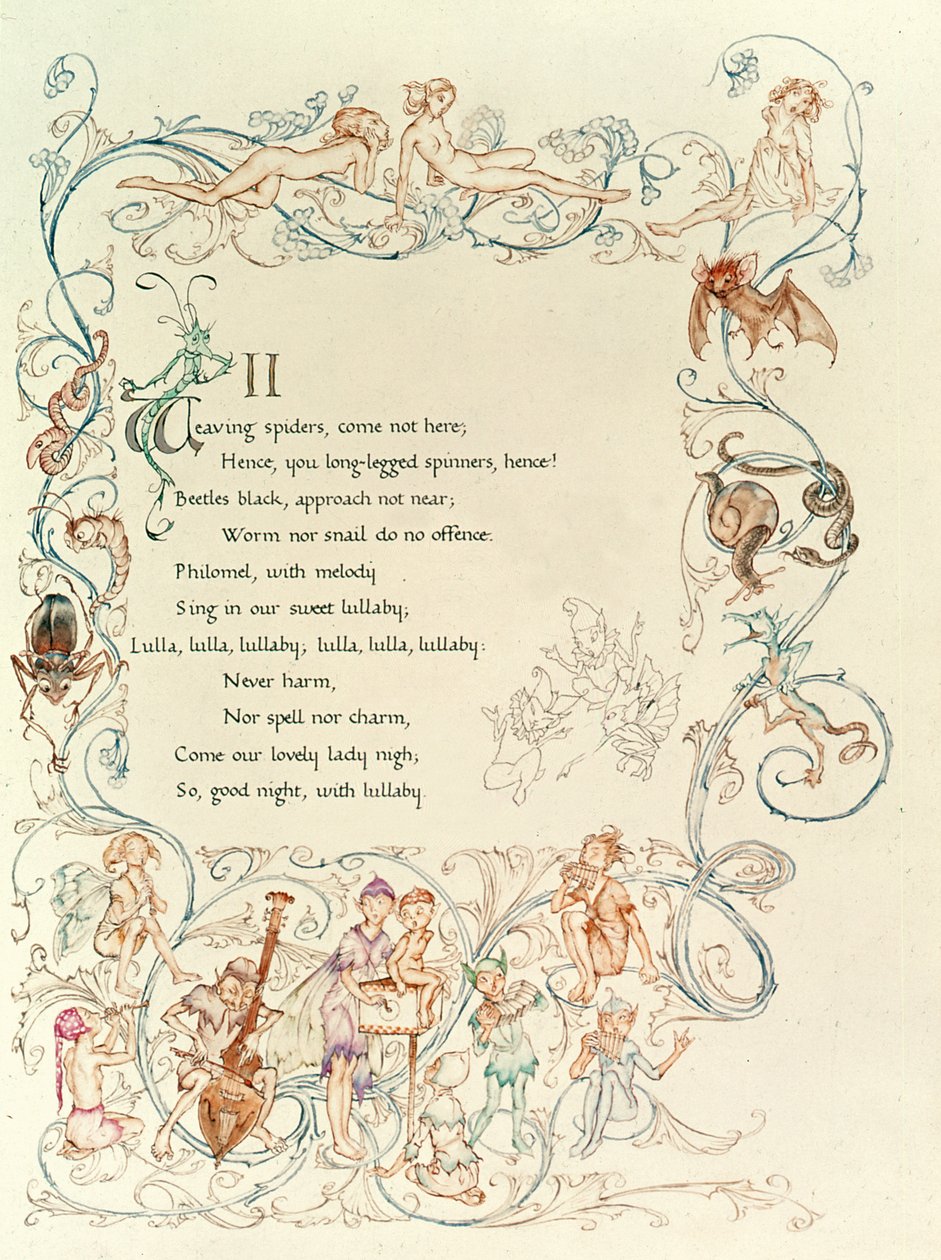 II
Weaving spiders, come not here;
Hence, you long-legged spinners, hence!
Beetles black, approach not near;
Worm nor snail do no offence.
Philomel, with melody
Sing in our sweet lullaby;
Lulla, lulla, lullaby; lulla, lulla, lullaby:
Never harm,
Nor spell nor charm,
Come our lovely lady nigh;
So, good night, with lullaby.